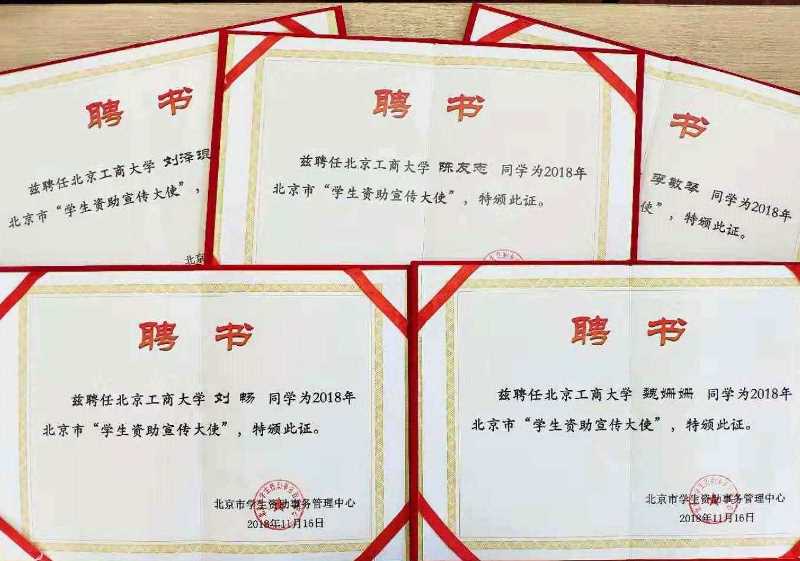 聘 书
兹聘任北京工商大学 刘泽琨
北京市“学生资助宣传大使”，
北京
聘 书
兹聘任北京工商大学 陈友志 同学为2018年
北京市“学生资助宣传大使”，特颁此证。
书
李敏琴 同学为2018年
使”，特颁此证。
聘 书
兹聘任北京工商大学 刘 畅 同学为2018年
北京市“学生资助宣传大使”，特颁此证。
北京市学生资助事务管理中心
2018年11月16日
聘 书
兹聘任北京工商大学 魏姗姗 同学为2018年
北京市“学生资助宣传大使”，特颁此证。
北京市学生资助事务管理中心
2018年11月16日